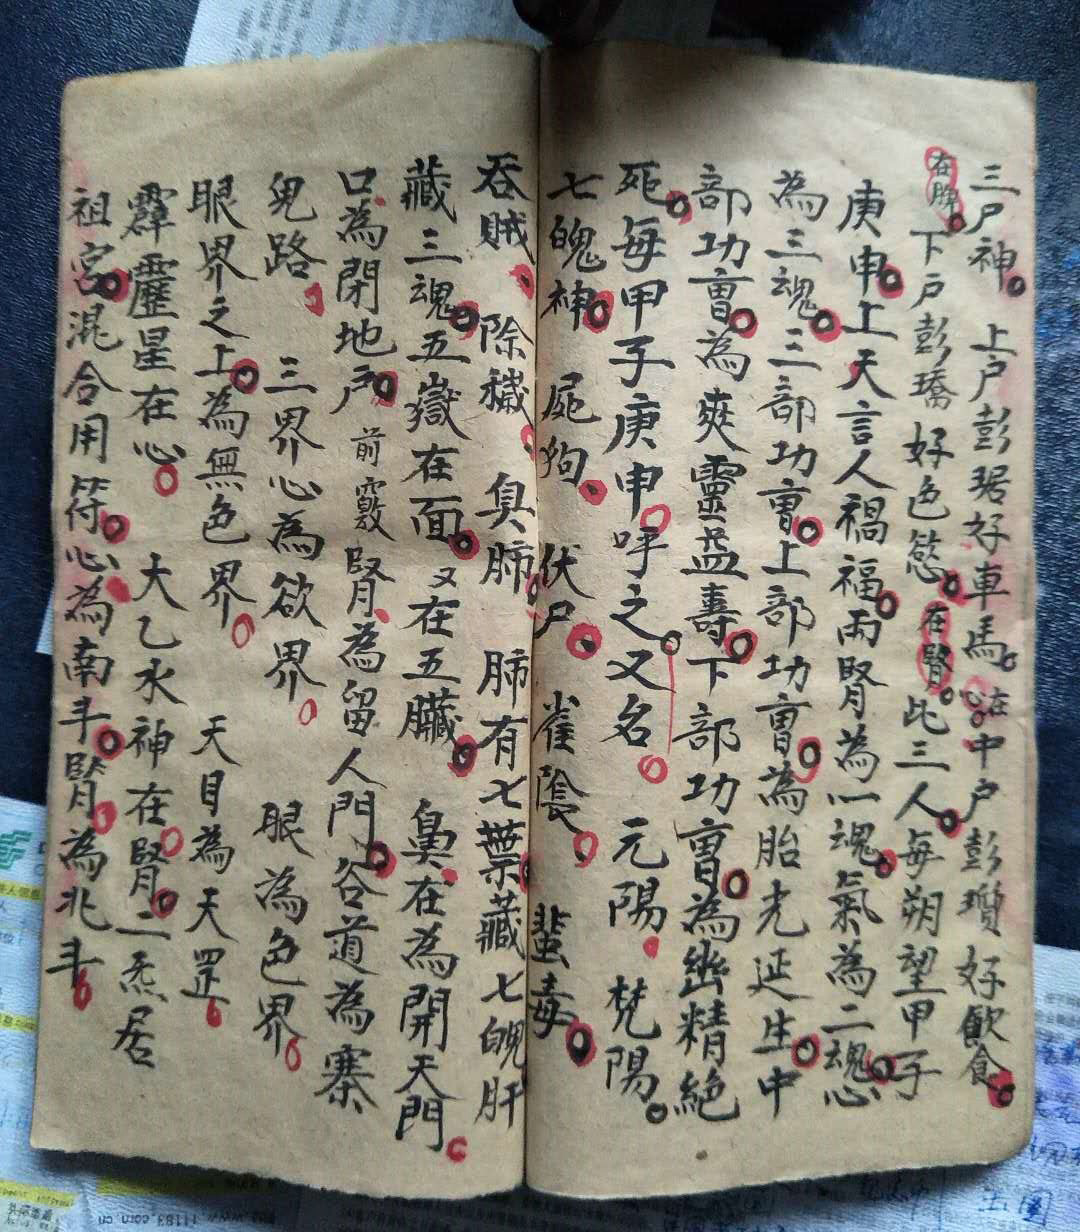 三尸神。上户彭琚好車馬。在心。中户彭瓆好飲食。
在脾。下户彭璚好色慾。在腎。此三人。每朔望甲子
庚申。上天言人禍福。兩腎為一魂。氣為二魂。心
為三魂。三部功曺。上部功曺。為胎光延生。中
部功曺。為爽靈益壽。下部功曺。為幽精絶
死。每甲子庚申。呼之。又名。元陽、梵陽。
七魄神。屍狗、伏尸、雀陰、蜚毒。
吞賊、除穢、臭肺。肺有七葉。藏七魄肝
藏三魂。五嶽在面。又在五臟。鼻在為開天門。
口為閉地户。前竅腎、為留人門。谷道為寨
鬼路。三界心為欲界。眼為色界。
眼界之上。為無色界。天目為天罡。
霹靂星在心。大乙水神在腎。二炁居
祖宮。混合用符。心為南斗。腎為北斗。
11183.com.cn